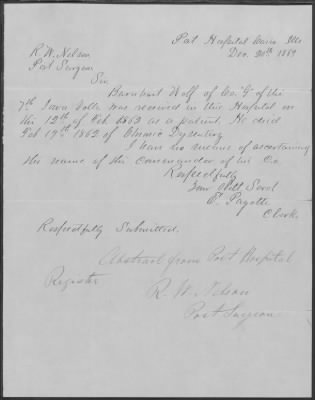 Post Hospital Cairo Ills
Dec. 20th 1862
R. W. Nelson
Post Surgeon
Sir
Barnhart Wolf of Co. "G" of the
7th Iowa Vols. was received in this Hospital on
the 12th of Feb 1862 as a patient. He died
Feb 19th 1862 of Chronic Dysentery
I have no means of ascertaining
the name of the commander of his Co.
Respectfully
Your Obdt Servt
P. Payette
Clerk.
Respectfully Submitted.
Abstract from Post Hospital
Register
R. W. Nelson
Post Surgeon